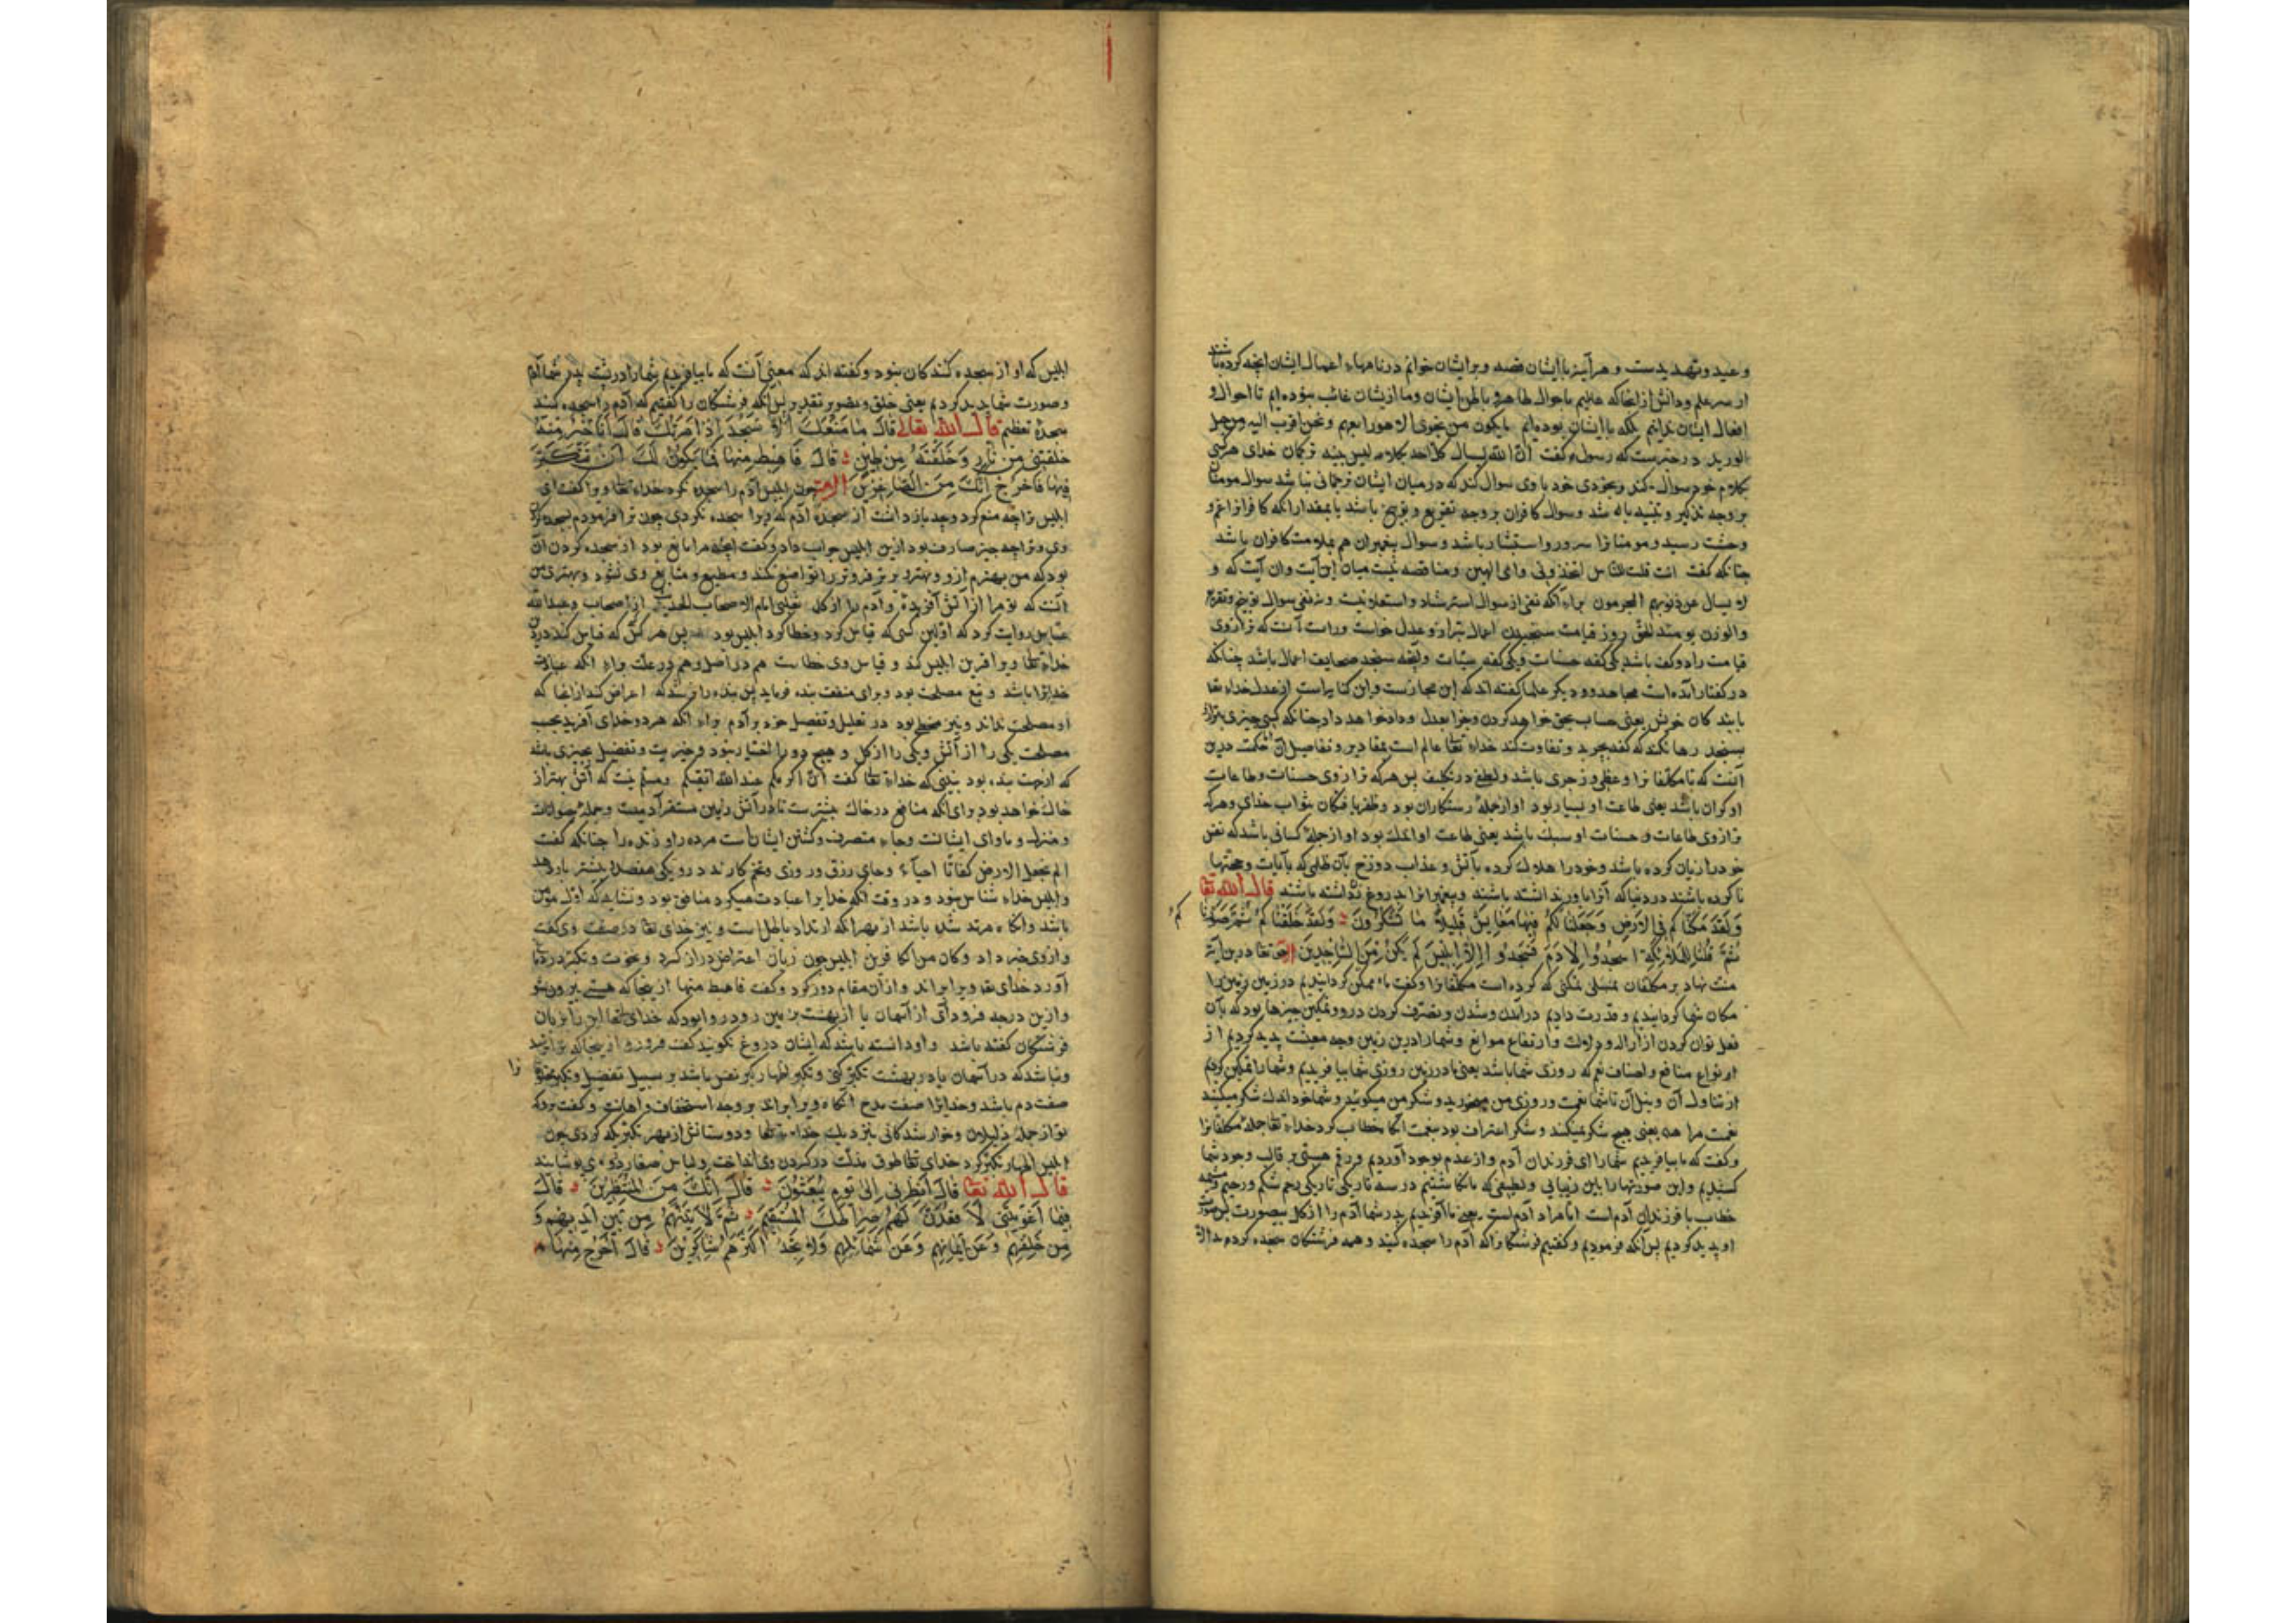 وعید وتهدیدست و هر آینه با ایشان قصه و برایشان خوانم در نامهاء اعمال ایشان انچه کرده باشند
از سر علم ودانش از انجا که عالیم باحوال ظاهر و باطن ایشان وما ازیشان غائب نبوده ایم تا احوال و
افعال ایشان ندانیم بلکه با ایشان بوده ایم ما یکون من نجوی الا هو رابعهم ونحن اقرب الیه من حبل
الورید در خبرست که رسول گفت ان الله یسال کل احد بکلامه لیس بینه ترجمان خدای هر کسی
بکلام خود سوال کند وبخودی خود با وی سوال کند که در میان ایشان ترجمانی نباشد سوال مومنان
بر وجه تذکیر و تنبیه باشد وسوال کافران بر وجه تقریع و توبیخ باشد بمقدار انکه کافرانرا غم و
وحشت رسد و مومنانرا سرور و استبشار باشد و سوال پیغمبران هم بملامت کافران باشد
چنانکه گفت ءانت قلت للناس اتخذونی وامی الهین ومناقصه نیست میان این آیت وان آیت که و
لا یسال عن ذنوبهم المجرمون براء آنکه نفی از سوال استرشاد واستعلامست ونه نفی سوال توبیخ وتقریع
والوزن یومئذ الحق روز قیامت سنجیدن اعمال بترازو عدل خواست وراست آنست که ترازوی
قیامت را دو کفه باشد یکی کفه حسنات ویکی کفه سیئات وانچه سنجد صحایف اعمال باشد چنانکه
در گفتار آمده است مجاهد و دیگر علما گفته اند که این مجازست واین کنایه است از عدل خداء تعا
بابند کان خویش یعنی حساب بحق خواهد کردن وجزا بعدل و داد خواهد داد چنانکه کسی چیزی بترازو
بسنجد رها نکند که کفه بچربد و تفاوت کند خداء تعا عالم است بمقادیر وتفاصیل آن حکمت درین
آنست که تا مکلفانرا وعظی و زجری باشد ولطف در تکلیف پس هر که ترازوی حسنات وطاعات
او گران باشد یعنی طاعت او بسیار بود او از جمله رستکاران بود و ظفر یافتگان بثواب خدای وهر که
ترازوی طاعات وحسنات او سبک باشد یعنی طاعت او اندک بود او از جمله کسانی باشد که نفس
خود را زیان کرده باشد وخود را هلاک کرده بآتش وعذاب دوزخ بآن ظلمی که بآیات وحجتها
ما کرده باشند در دنیا که آنرا باور نداشته باشند وپیغمبرانرا بدروغ داشته باشند قال الله تعا
وَلَقَدْ مَكَّنَّاكُمْ فِي الْاَرْضِ وَجَعَلْنَا لَكُمْ فِيهَا مَعَايِشَ قَلِيلًا مَا تَشْكُرُونَ وَلَقَدْ خَلَقْنَاكُمْ ثُمَّ صَوَّرْنَا
كُمْ
ثُمَّ قُلْنَا لِلْمَلَائِكَةِ اسْجُدُوا لِآدَمَ فَسَجَدُوا اِلَّا اِبْلِيسَ لَمْ يَكُنْ مِنَ السَّاجِدِينَ حق تعا درین آیت
منت نهاد بر مکلفان بتمکنی که کرده است مکلفانرا وگفت ما ممکن گردانیدیم در زمین زمین را
مکان شما گردانیدیم وقدرت دادیم در آمدن وشدن وتصرف کردن درو وتمکین چیزها بود که بآن
فعل توان کردن از آلات و ارتفاع موانع وشما را درین زمین وجه معیشت پدید کردیم از
انواع منافع واصناف نعم که روزی شما باشد یعنی ما در زمین روزی شما بیافریدیم وشما را تمکین کردیم
از تناول آن وبنیل آن تا شما نعمت وروزی من میخورید وشکر من میگوئید وشما خود اندک شکر میکنید
نعمت مرا یعنی هیچ شکر نمیکنند وشکر اعتراف بود بنعمت آنگاه خطاب کرد خداء تعا جمله مکلفانرا
وگفت که ما بیافریدیم شما را ای فرزندان آدم واز عدم بوجود آوردیم ورقم هستی بر قالب وجود شما
کشیدیم واین صورتها را باین زیبایی ولطیفی که بنگاشتیم در سه تاریکی تاریکی رحم شکم ورحم ومشیمه
خطاب با فرزندان آدم است اما مراد آدم است یعنی ما آفریدیم پدر شما آدم را از گل بیصورت پس صورت
او پدید کردیم پس آنکه فرمودیم وگفتیم فرشتگانرا که آدم را سجده کنید وهمه فرشتگان سجده کردند الا
ابلیس که او از سجده کنندکان نبود وگفته اند که معنی آنست که ما بیافریدیم شما را در پشت پدر شما آدم
وصورت شما پدید کردیم یعنی خلق وتصویر تقدیر پس آنکه فرشتگان را گفتیم که آدم را سجده کنند
سجده تعظیم قال الله تعالی قَالَ مَا مَنَعَكَ اَلَّا تَسْجُدَ اِذْ اَمَرْتُكَ قَالَ اَنَا خَيْرٌ مِنْهُ
خَلَقْتَنِي مِنْ نَارٍ وَخَلَقْتَهُ مِنْ طِينٍ قَالَ فَاهْبِطْ مِنْهَا فَمَا يَكُونُ لَكَ اَنْ تَتَكَبَّرَ
فِيهَا فَاخْرُجْ اِنَّكَ مِنَ الصَّاغِرِينَ چون ابلیس آدم را سجده نکرد خداء تعا ورا گفت ای
ابلیس ترا چه منع کرد وچه بازداشت از سجده آدم که ویرا سجده نکردی چون ترا فرمودم بسجده کردن
وی وترا چه چیز صارف بود ازین ابلیس جواب داد وگفت انچه مرا مانع بود از سجده کردن آن
بود که من بهترم ازو وبهتر فروتر را تواضع نکند ومطیع ومتابع وی نشود وبهتری من
آنست که تو مرا از آتش آفریدۀ وآدم را از گل ثعلبی امام الاصحاب الحدیث از اصحاب وعبدالله
عباس روایت کرد که اولین کسی که قیاس کرد وخطا کرد ابلیس بود پس هر کس که قیاس کند در دین
خداء تعا ویرا قرین ابلیس کند وقیاس وی خطاست هم در اصل وهم در علت براء آنکه عبادت
خدایرا باشد وتبع مصلحت بود وبرای منفعت بنده فرماید پس بنده را نرسد که اعراض کند از انجا که
او مصلحت نداند ونیز مخطی بود در تعلیل وتفضیل خود بر آدم براء آنکه هر دو خدای آفرید بحسب
مصلحت یکی را از آتش ویکی را از گل وهیچ دو را اختیار نبود وخیریت وتفضیل بچیزی باشد
که از جهت بنده بود نبینی که خداء تعا گفت ان اکرمکم عند الله اتقیکم ومسلم نیست که آتش بهتر از
خاک خواهد بود برای آنکه منافع در خاک بیشترست تا در آتش زمین مستقر آدمیست وجمله حیوانات
ومنزل وماوای ایشانست وجاء متصرف وکشتن ایشان است مرده را وزنده را چنانکه گفت
الم نجعل الارض کفاتا احیاء وجای رزق وروزی وتخم کارند درو یکی هفصد بیشتر باز دهد
وابلیس خداء شناس نبود و در وقت آنکه خدایرا عبادت میکرد منافق بود ونشاید که اول مؤمن
باشد وآنگاه مرتد شده باشد از بهر آنکه ارتداد باطل است ونیز خدای تعا در صفت وی گفت
واز وی خبر داد وکان من الکافرین ابلیس چون زبان اعتراض دراز کرد ونخوت وتکبر در دماغ
آورد خدای تعا ویرا براند واز آن مقام دور کرد وگفت فاهبط منها از ینجا که هستی بیرون شو
وازین درجه فرود آی از آسمان یا از بهشت بزمین رو و روا بود که خدای تعا این را بزبان
فرشتگان گفته باشد واو دانسته باشد که ایشان دروغ نگویند گفت فرو رو از ینجا که ترا نرسد
را
ونباشد که در آسمان یا در بهشت تکبر کنی وتکبر اظهار کبر نفس باشد بر سبیل تفضیل وتکبر بحق
صفت ذم باشد وخدایرا صفت مدح آنگاه ویرا براند بر وجه استخفاف واهانت وگفت برو که
تو از جمله ذلیلان وخوار شدگانی بنزدیک خداء تعا ودوستانش از بهر تکبر که کردی چون
ابلیس اظهار تکبر کرد خدای تعا طوق مذلت در گردن وی انداخت ولباس صغار درو می پوشانند
قال الله تعا قَالَ اَنْظِرْنِي اِلَى يَوْمِ يُبْعَثُونَ قَالَ اِنَّكَ مِنَ الْمُنْظَرِينَ قَالَ
فَبِمَا اَغْوَيْتَنِي لَاَقْعُدَنَّ لَهُمْ صِرَاطَكَ الْمُسْتَقِيمَ ثُمَّ لَآتِيَنَّهُمْ مِنْ بَيْنِ اَيْدِيهِمْ وَ
مِنْ خَلْفِهِمْ وَعَنْ اَيْمَانِهِمْ وَعَنْ شَمَائِلِهِمْ وَلَا تَجِدُ اَكْثَرَهُمْ شَاكِرِينَ قَالَ اخْرُجْ مِنْهَا